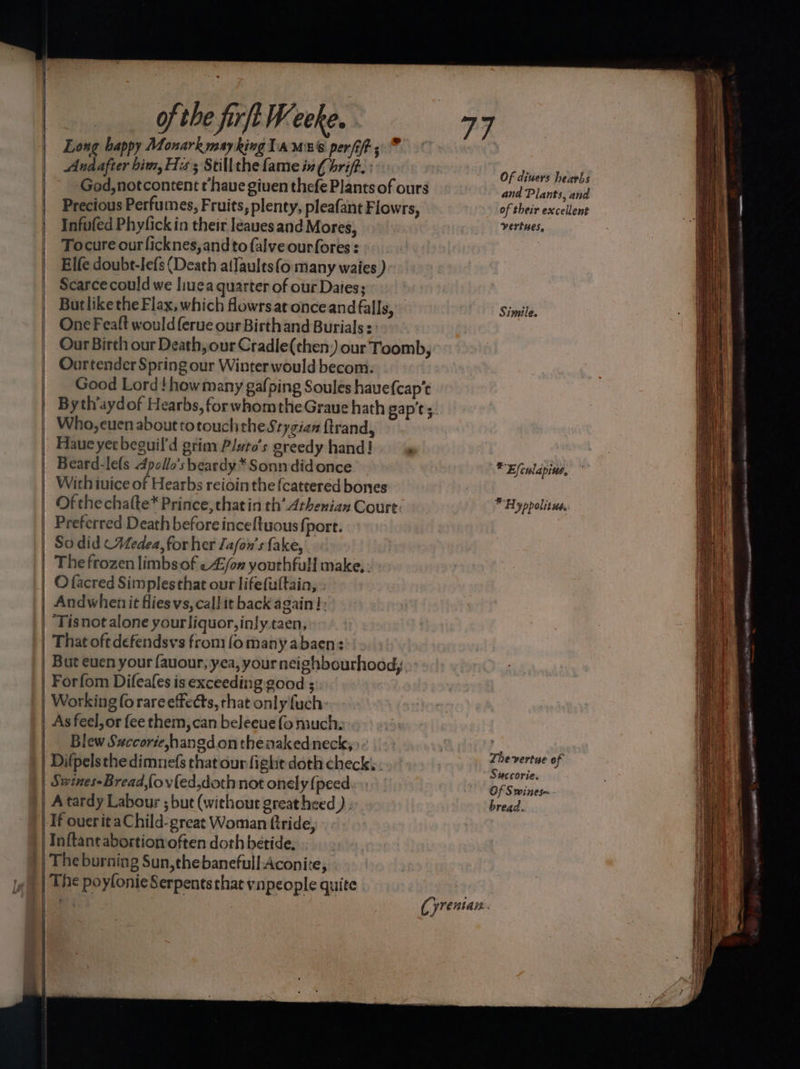 of the firſt Weeke. 77
Long happy Monark may king IAMES perſiſt;
And after him, His; Still the ſame in Chriſt.
God, not content t'haue giuen theſe Plants of ours
Precious Perfumes, Fruits, plenty, pleaſant Flowrs,
Infuſed Phyſick in their leaues and Mores,
To cure our ſicknes, and to ſalve our ſores:
Elſe doubt-leſs (Death aſſaults ſo many waies)
Scarce could we liue a quarter of our Dates;
But like the Flax, which flowrs at once and falls,
One Feaſt would ſerue our Birth and Burials:
Our Birth our Death, our Cradle (then) our Toomb,
Our tender Spring our Winter would becom.
Good Lord! how many gaſping Soules haue ſcap't
By th'ayd of Hearbs, for whom the Graue hath gap't;
Who, euen about to touch the Stygian ſtrand,
Haue yet beguil'd grim Pluto's greedy hand!
Beard-leſs Apollo's beardy * Sonn did once
With iuice of Hearbs reioin the ſcattered bones
Of the chaſte * Prince, that in th' Athenian Court
Preferred Death before inceſtuous ſport.
So did Medea, for her Iaſon's ſake,
The frozen limbs of Æſon youthfull make.
O ſacred Simples that our life ſuſtain,
And when it flies vs, call it back again!
'Tis not alone your liquor, inly taen,
That oft defends vs from ſo many a baen:
But euen your ſauour, yea, your neighbourhood,
For ſom Diſeaſes is exceeding good;
Working ſo rare effects, that only ſuch
As feel, or ſee them, can beleeue ſo much.
Blew Succorie, hangd on the naked neck,
Diſpels the dimneſs that our ſight doth check.
Swines-Bread, ſo vſed, doth not onely ſpeed
A tardy Labour; but (without great heed)
If ouer it a Child-great Woman ſtride,
Inſtant abortion often doth betide.
The burning Sun, the banefull Aconite,
The poyſonie Serpents that vnpeople quite
Cyrenian
Of diuers hearbs
and Plants, and
of their excellent
vertues.
Simile.
* Eſculapius.
* Hyppolitus.
The vertue of
Succorie.
Of Swines-
bread.